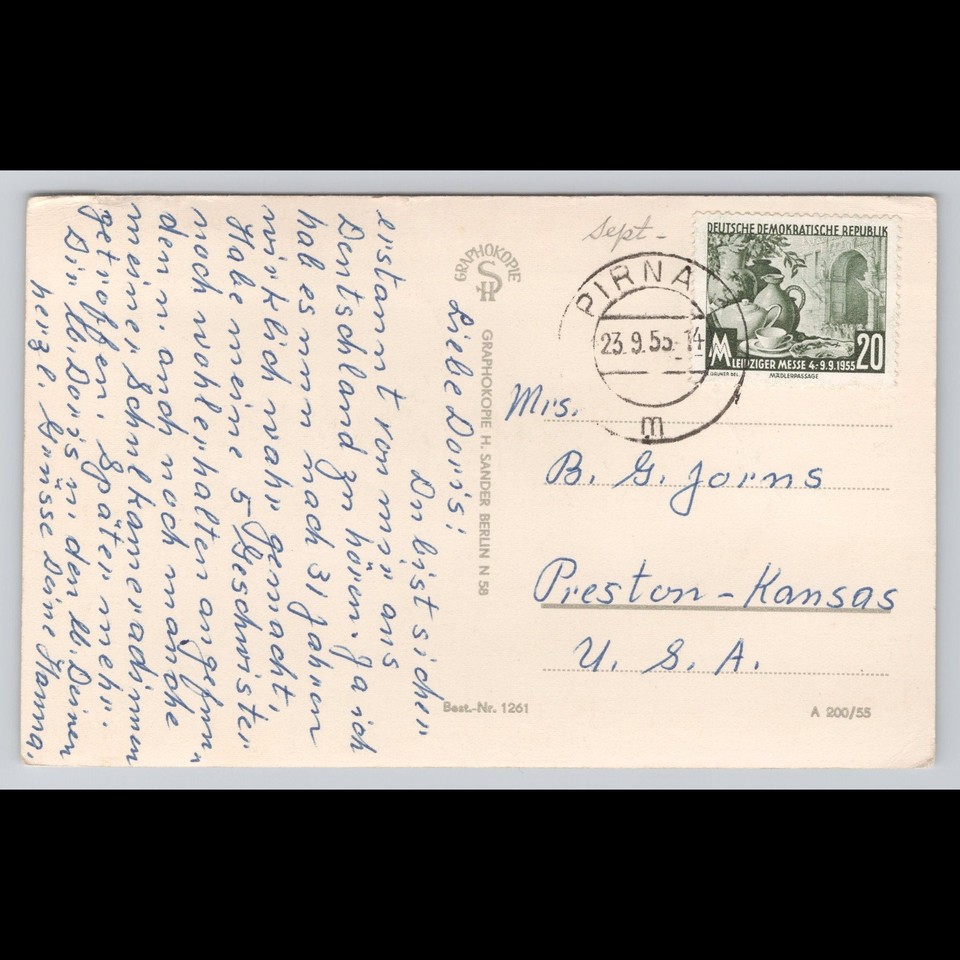 Liebe Doris!
Du bist sicher
erstaunt von mir aus
Deutschland zu hören. Ja ich
hab es nun nach 31 Jahren
wirklich wahr gemacht.
Habe meine 5 Geschwister
noch wohlerhalten angefun-
den u. auch noch manche
meiner Schulkameradinnen
getroffen. Später mehr.
Dir lb. Doris u. den lb. Deinen
herzl. Grüsse Deine Hanna.
GRAPHOKOPIE
SH
GRAPHOKOPIE H. SANDER BERLIN N 58
Best.-Nr. 1261
Sept-
PIRNA
23.9.55-14
m
DEUTSCHE DEMOKRATISCHE REPUBLIK
M
LEIPZIGER MESSE 4.-9.9.1955
20
MÄDLERPASSAGE
Mrs.
B. G. Jorns
Preston-Kansas
U. S. A.
A 200/55